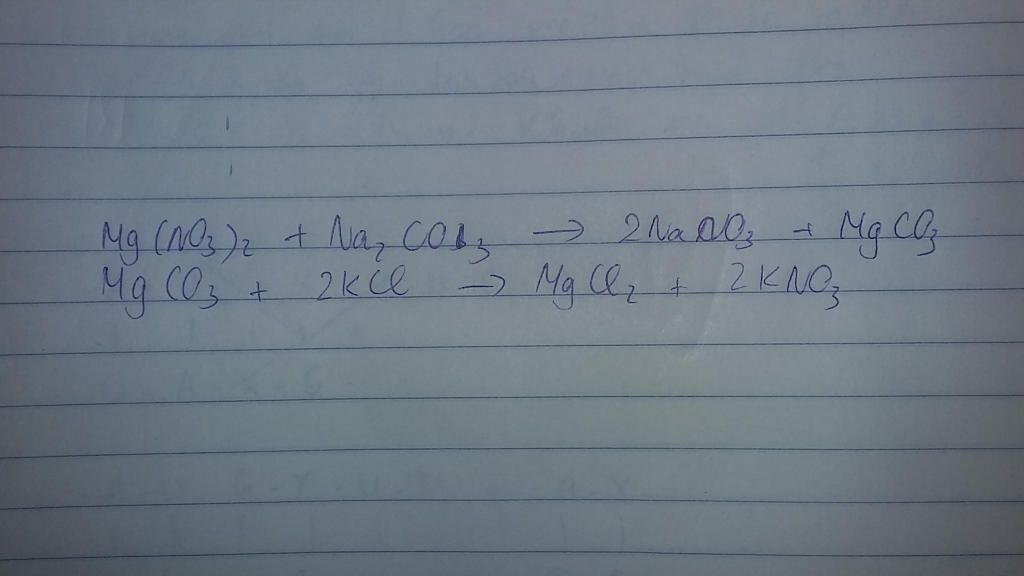 Mg(NO₃)₂ + Na₂CO₃ → 2NaNO₃ + MgCO₃
MgCO₃ + 2KCl → MgCl₂ + 2KNO₃